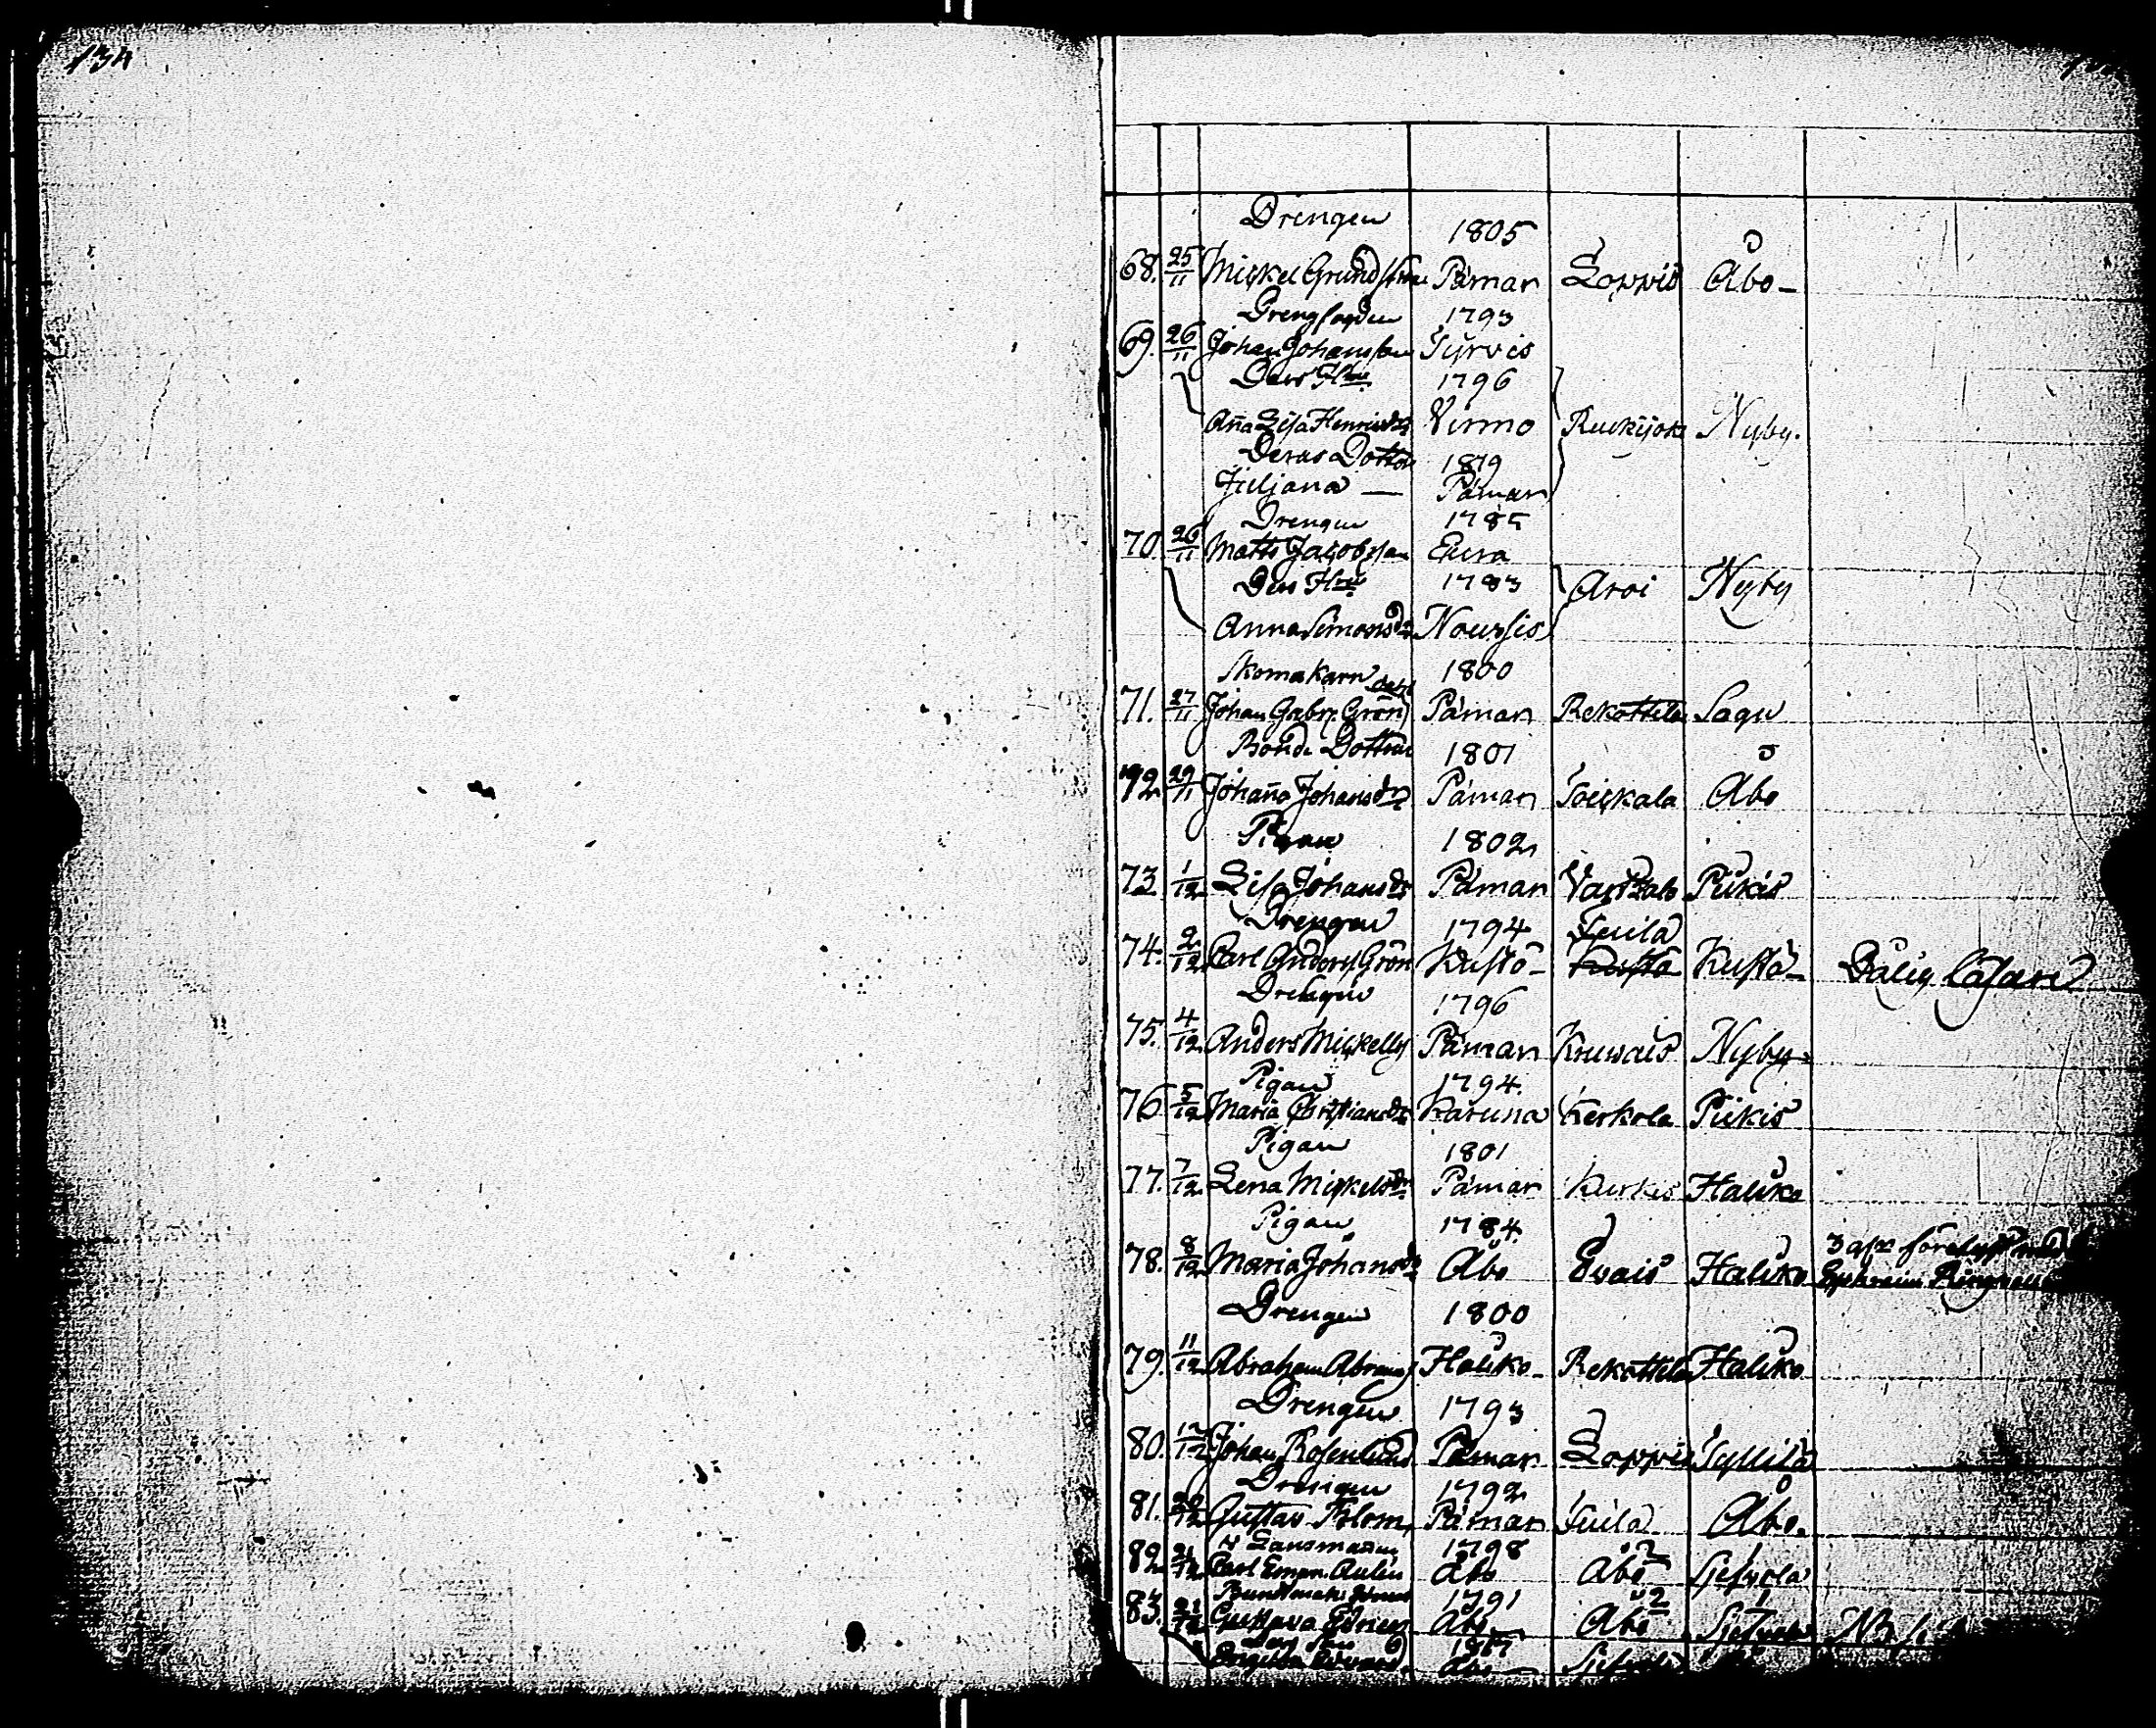 134
Drengen 1805
68. 25/11 Mickel Grundström Pämar Loppis Åbo
Drengfogden 1793
69. 26/11 Johan Johansson Tyrvis
Dess H:u 1796
Aña Lisa Henricsdr Virmo Ruckijoki Nyby.
Deras Dotter 1819
Juliana — Pämar
Drengen 1785
70. 26/11 Matts Jacobsson Eura
Dess H:u 1783 Arvi Nyby
Anna Simonsdr Nousis
Skomakarn 1800
71. 27/11 Johan Gabr. Grön Pämar Rekottila Sagu
Bonde Dottren 1801
72 29/11 Johaña Johansdr Pämar Toiskala Åbo
Pigan 1802
73 1/12 Lisa Johansdr Pämar Piikis
Drengen 1794 Tuila
74. 2/12 Carl Anders. Grön Kustö Kustö Kustö Dålig läsare
Drengen 1796
75. 4/12 Anders Mickelss Pämar Krusais Nyby
Pigan 1794.
76 5/12 Maria Christiansdr Karuna Kerkola Piikis
Pigan 1801
77. 7/12 Lena Mickelsdr Pämar Kurkis Haliko
Pigan 1784.
78. 8/12 Maria Johansdr Åbo Evais Haliko
Drengen 1800
79. 11/12 Abraham Abrams Haliko Rekottila Haliko
Drengen 1793
80. 12/12 Johan Rosenlund Pämar Loppis
Drengen 1792
81. Gustav Pämar Tuila Åbo.
Länsmannen 1798
82 21/12 Carl Eman. Aulin Åbo Åbo
1791
83. 21/12 Gustava Åbo Åbo
Dess Son